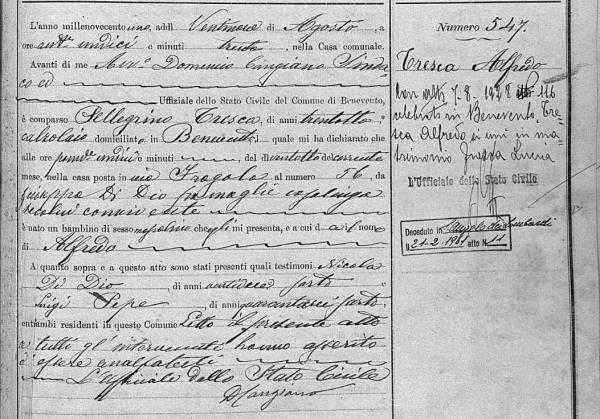 L'anno millenovecento uno, addì Ventinove di Agosto, a
ore antie undici e minuti trenta, nella Casa comunale.
Avanti di me Avvo Dominio Cangiano Sinda-
co ed
Uffiziale dello Stato Civile del Comune di Benevento,
è comparso Pellegrino Tresca, di anni trentotto
calzolaio domiciliato in Benevento, quale mi ha dichiarato che
alle ore pomdne undici minuti, del dì ventotto del corrente
mese, nella casa posta in via Fragola al numero 56, da
Giuseppa Di Dio sua moglie casalinga
seco lui convivente
è nato un bambino di sesso mascolino che egli mi presenta, e a cui dà il nome
di Alfredo
A quanto sopra e a questo atto sono stati presenti quali testimoni Nicola
Di Dio, di anni sarto e
Luigi Pepe, di anni quarantasei sarto,
entrambi residenti in questo Comune Letto il presente atto
a tutti gl'intervenuti hanno asserito
d'essere analfabeti
L'Uffiziale dello Stato Civile
D Cangiano
Numero 547.
Tresca Alfredo
con atto 7-8-1928 116
celebrato in Benevento Tre-
sca Alfredo si unì in ma-
trimonio
L'Ufficiale dello Stato Civile
Deceduto in S. Angelo dei Lombardi
il 21-2-1961 atto N. 11